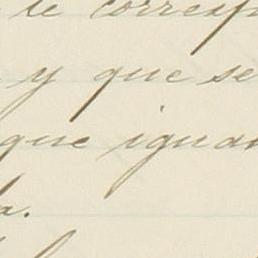 le corresp
y que se
que igual
a.